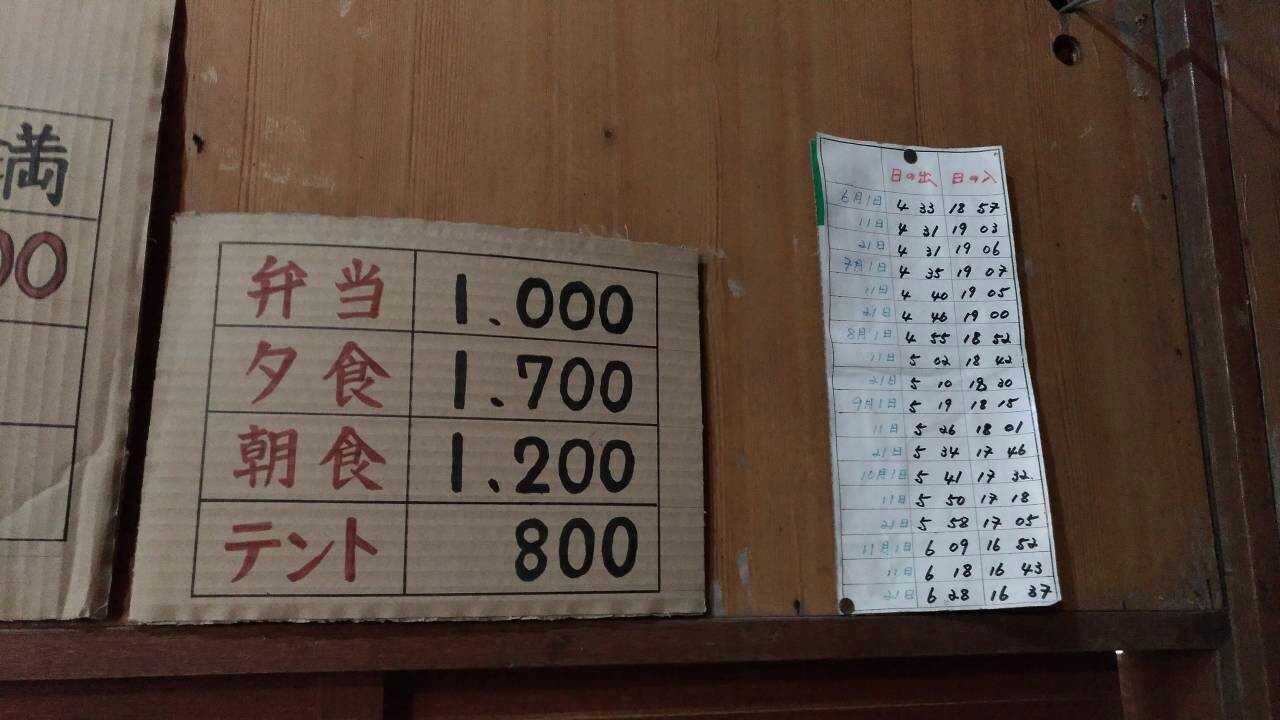 満
00
弁当 1.000
夕食 1.700
朝食 1.200
テント 800
日の出 日の入
6月1日 4 33 18 57
11日 4 31 19 03
21日 4 31 19 06
7月1日 4 35 19 07
11日 4 40 19 05
21日 4 46 19 00
8月1日 4 55 18 52
11日 5 02 18 42
21日 5 10 18 30
9月1日 5 19 18 15
11日 5 26 18 01
21日 5 34 17 46
10月1日 5 41 17 32
11日 5 50 17 18
21日 5 58 17 05
11月1日 6 09 16 52
11日 6 18 16 43
21日 6 28 16 37